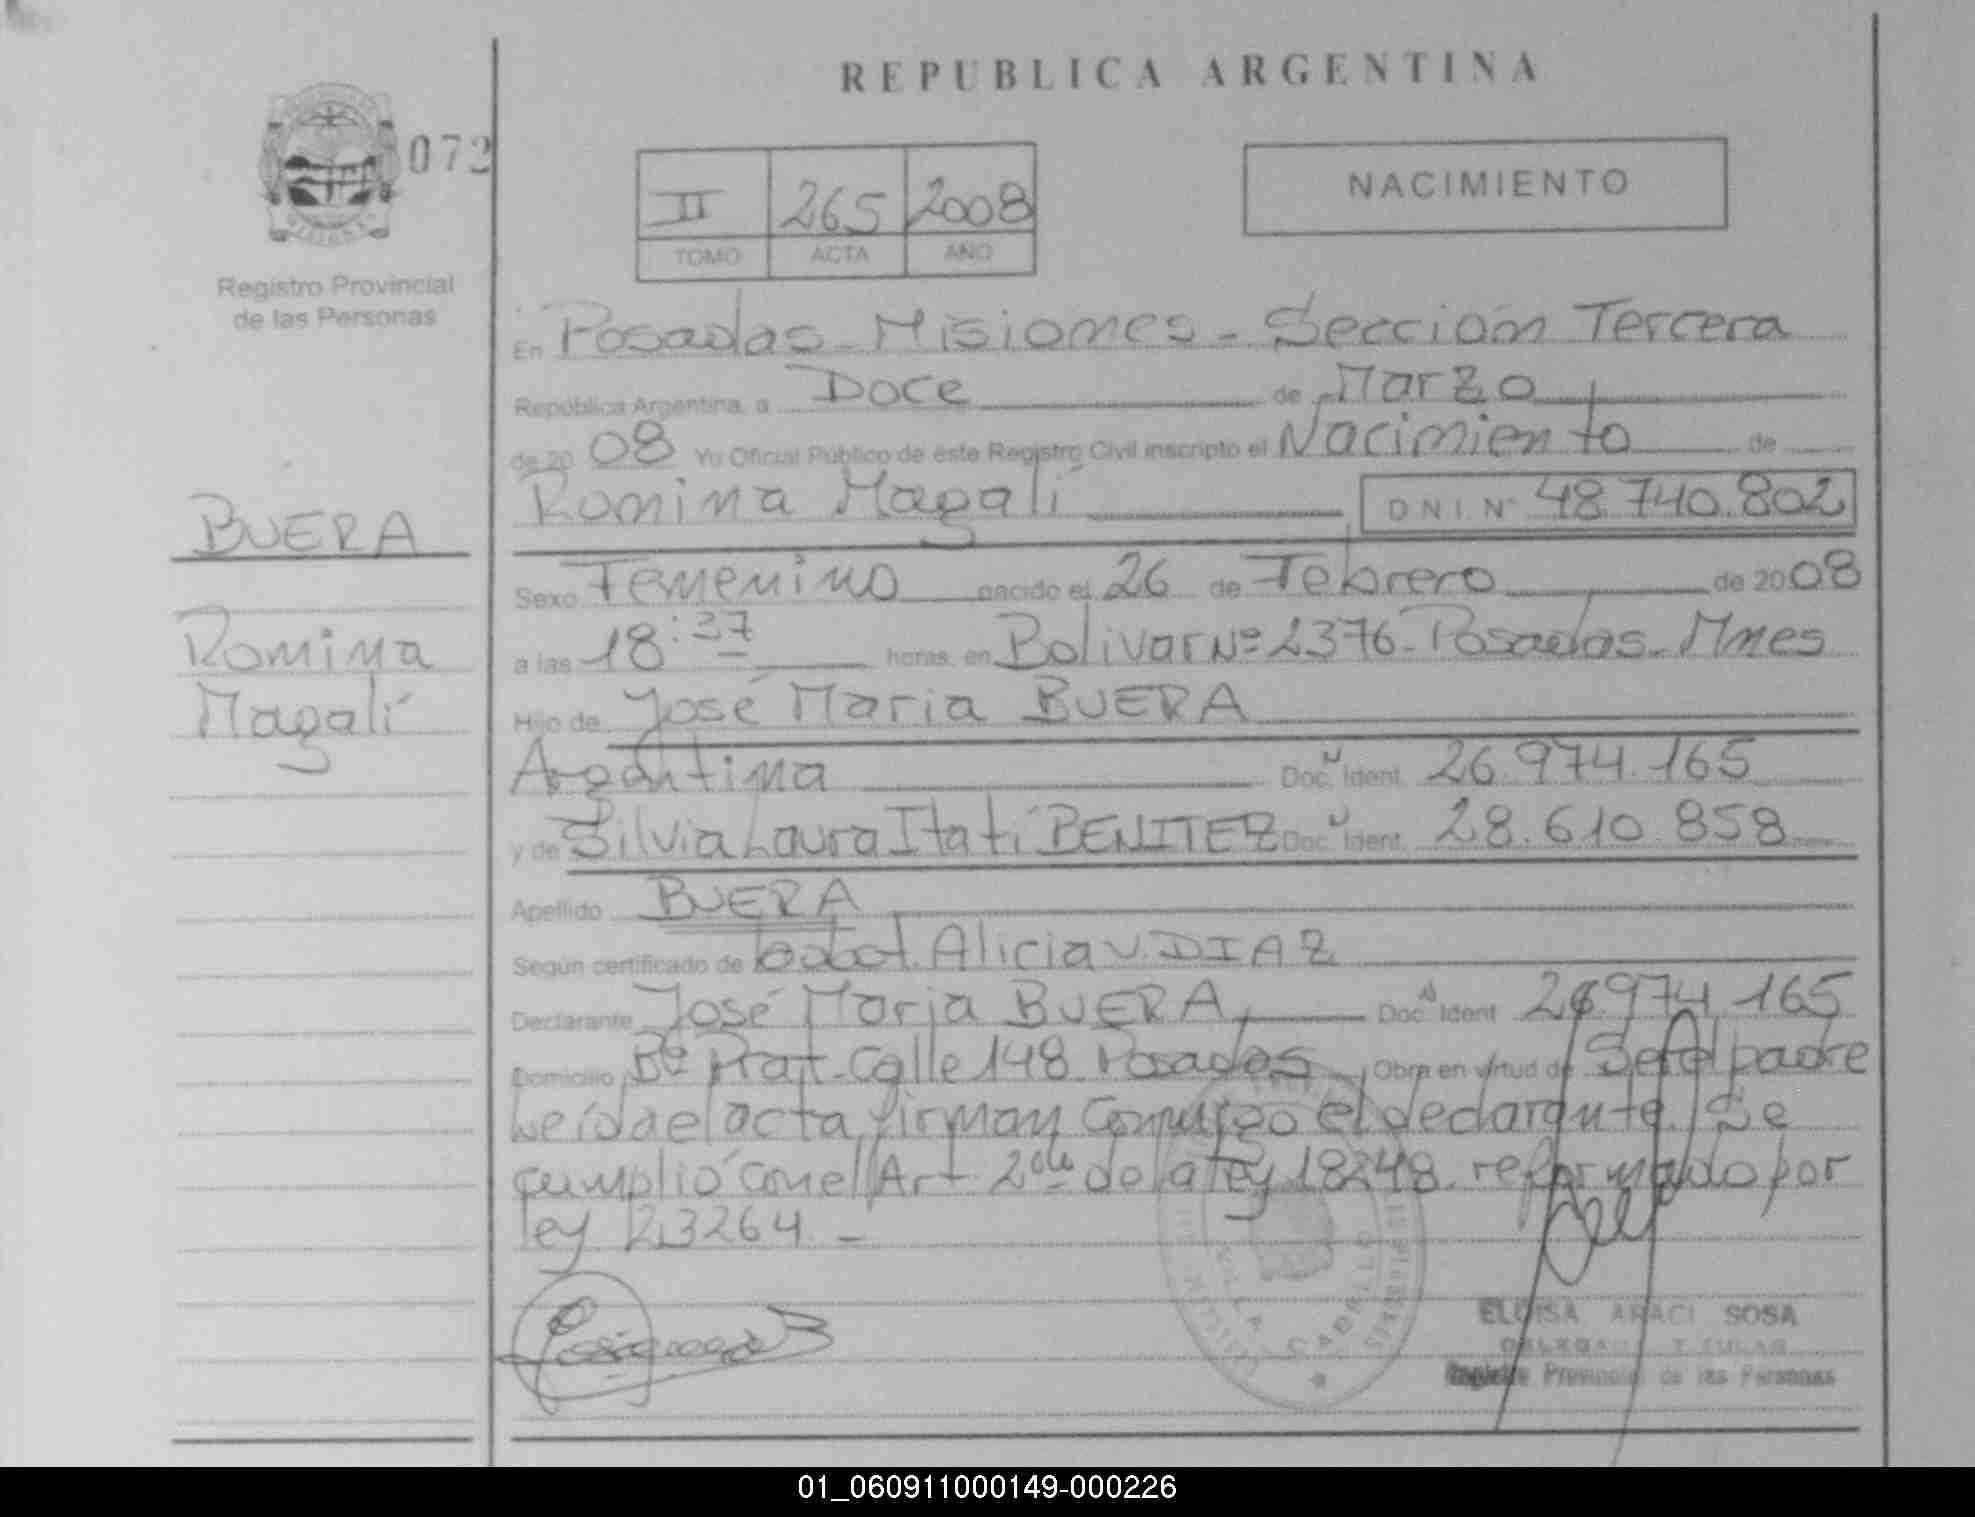 REPUBLICA ARGENTINA
072
Registro Provincial
de las Personas
II 265 2008
TOMO ACTA AÑO
NACIMIENTO
En Posadas - Misiones - Sección Tercera
República Argentina, a Doce de Marzo
de 20 08 Yo Oficial Público de éste Registro Civil inscripto el Nacimiento de
Romina Magalí D N I. N° 48.740.802
BUERA
Romina
Magalí
Sexo Femenino nacido el 26 de Febrero de 20 08
a las 18:37 horas, en Bolivar Nº 2376 - Posadas - Mnes
Hijo de José Maria BUERA
Argentina Doc. Ident. 26.974.165
y de Silvia Laura Itatí BENITEZ Doc. Ident. 28.610.858
Apellido BUERA
Según certificado de Alicia V. DIAZ
Declarante José Maria BUERA Doc. Ident 26.974.165
Domicilio Bº Prat - Calle 148 Posadas Obra en virtud de Ser el padre
Leída el acta firman conmigo el declarante. Se
cumplió con el Art 2do de la ley 18248 reformado por
ley 23264 -
VILLA CABELLO
ELOISA ARACI SOSA
Registro Provincial de las Personas
01_060911000149-000226